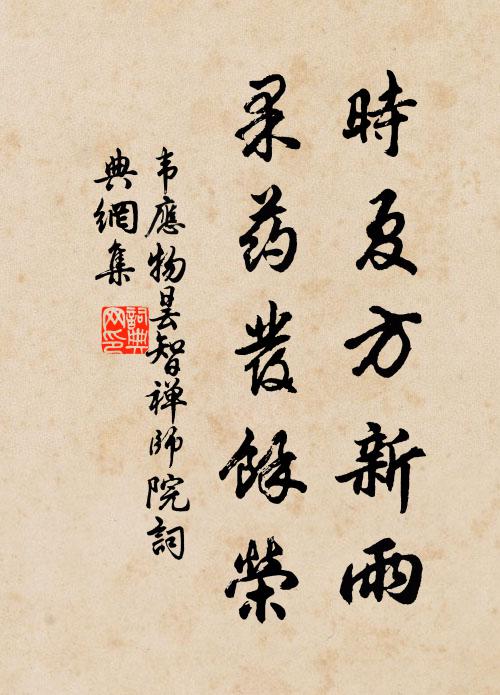 時夏方新雨
果药發餘榮
韦應物昙智禅師院詞
典網集
詞典
网印